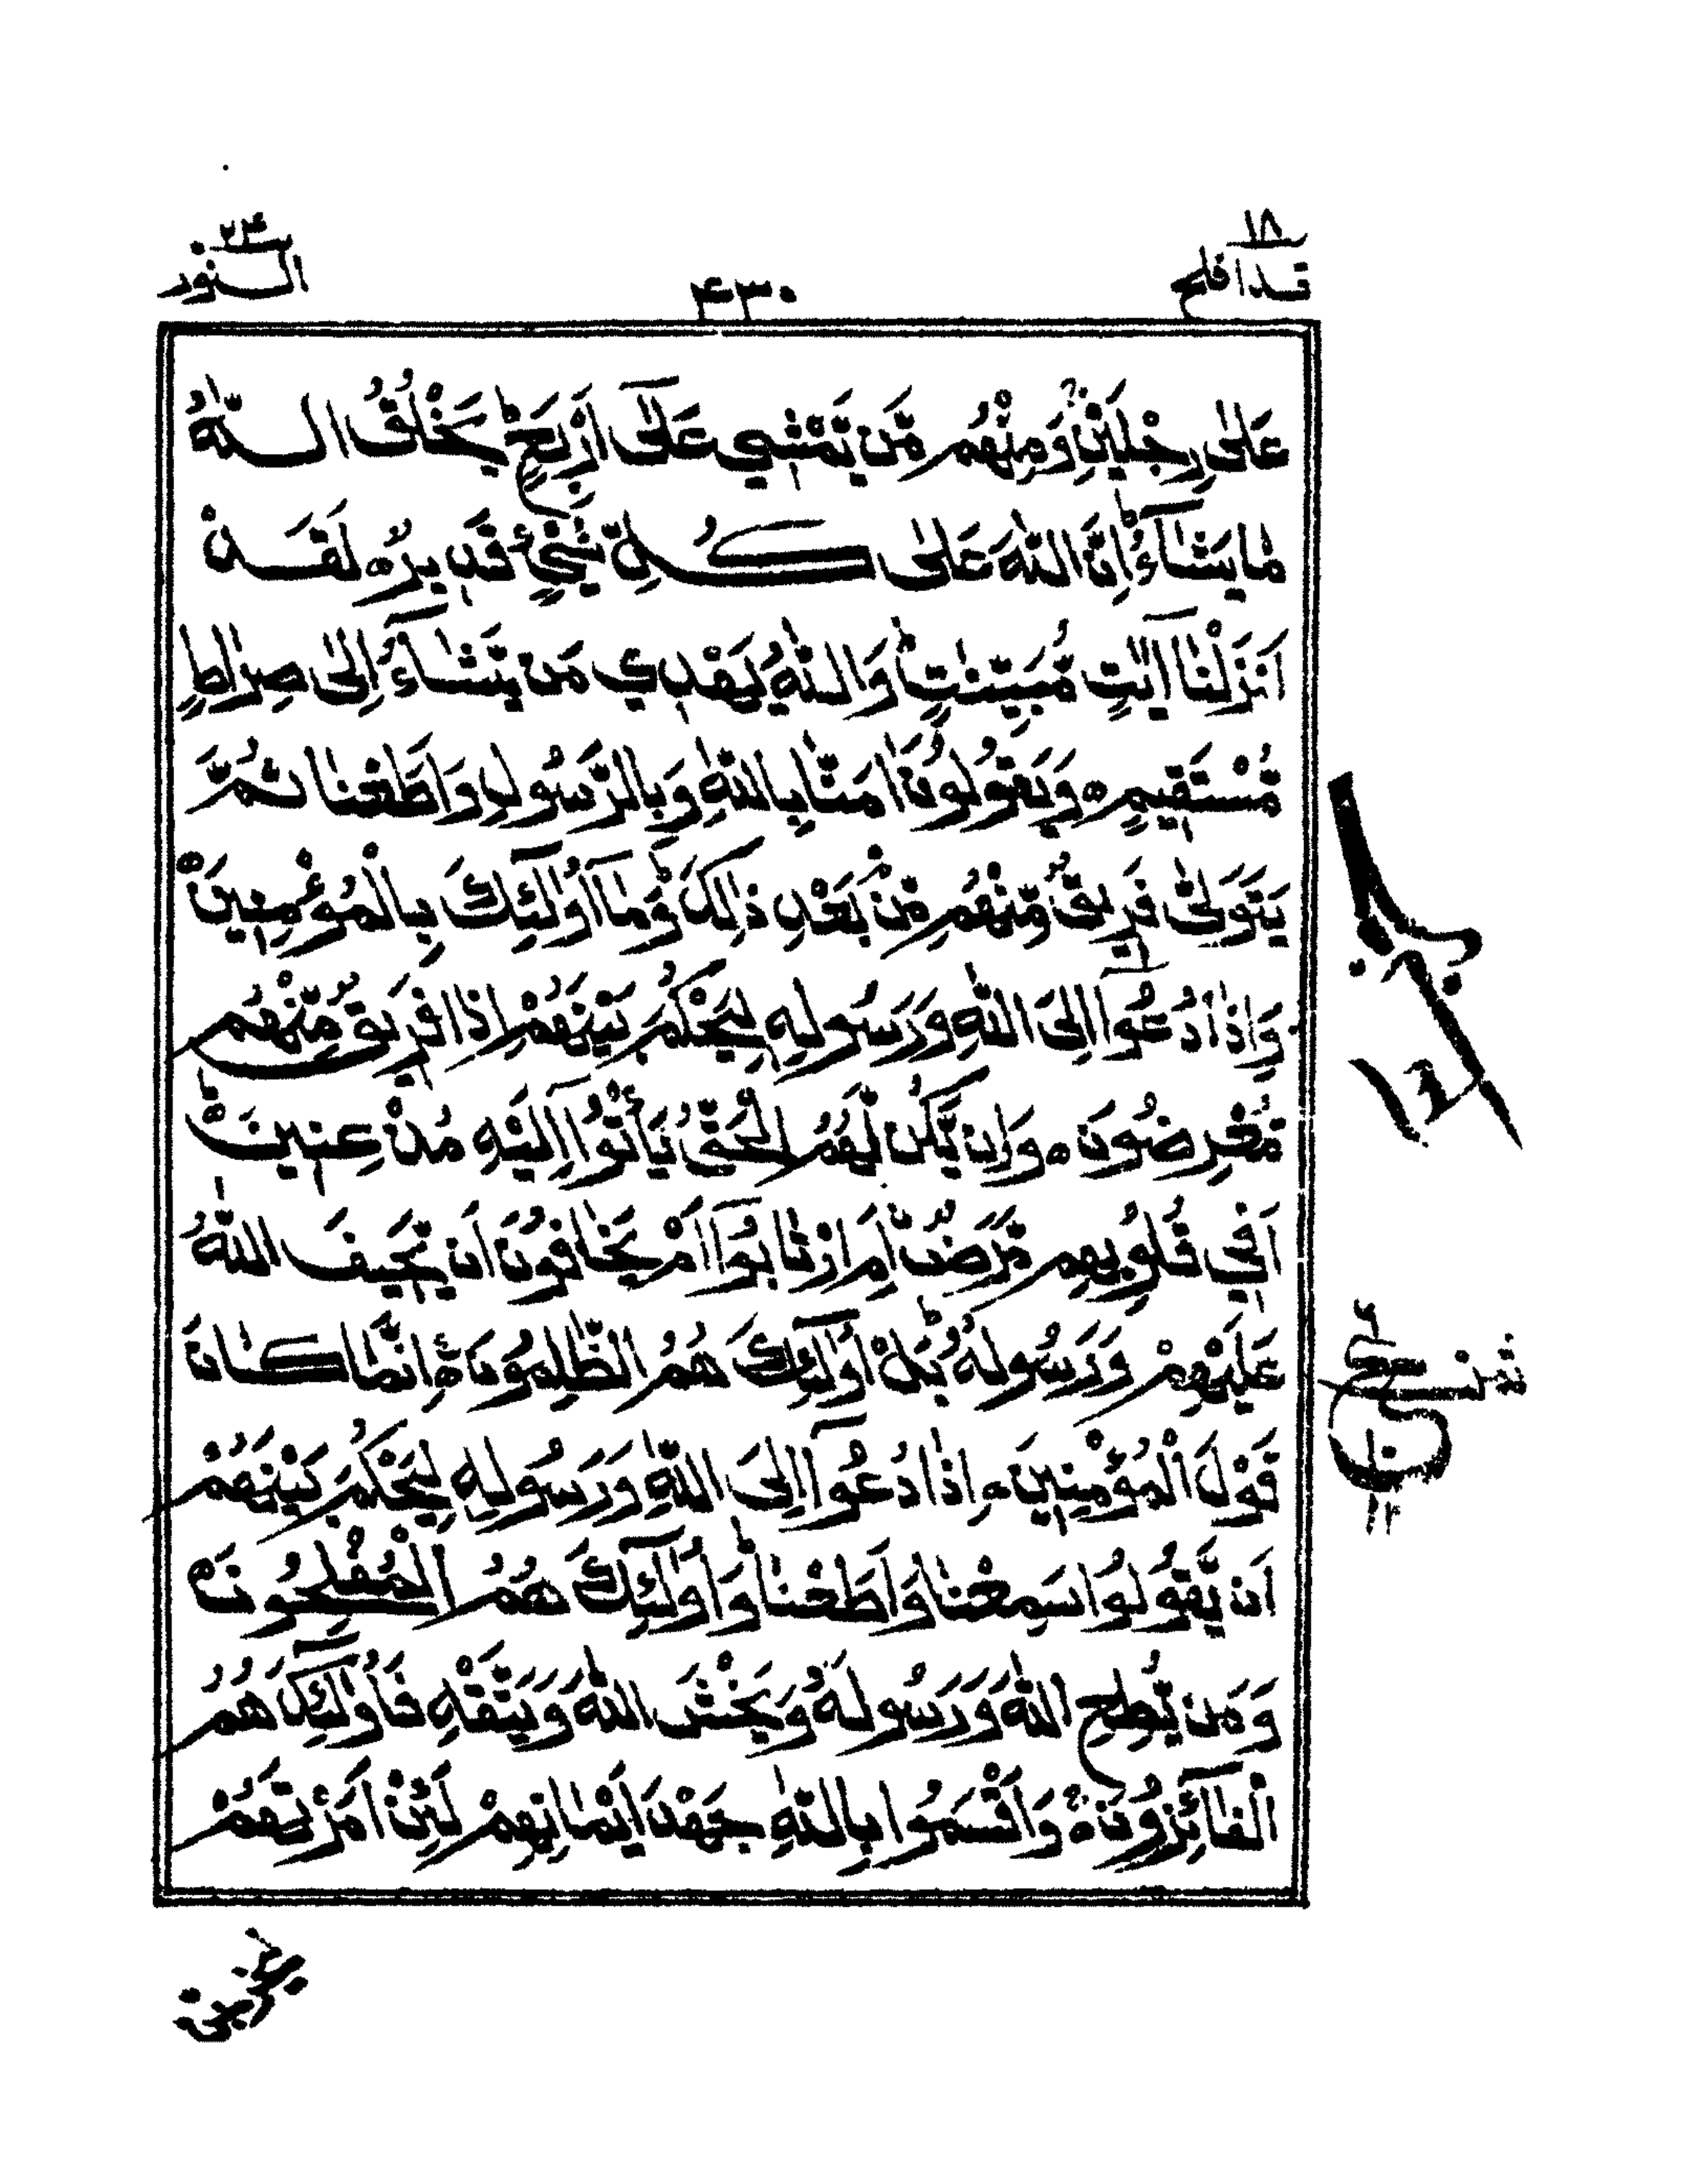 ١٨
قد افلح
٤٣٠
٢٤
النور
عَلٰى رِجْلَيْنِ وَمِنْهُمْ مَّنْ يَّمْشِيْ عَلٰٓى اَرْبَعٍ ؕ يَخْلُقُ اللّٰهُ
مَا يَشَآءُ ؕ اِنَّ اللّٰهَ عَلٰى كُلِّ شَيْءٍ قَدِيْرٌ ۝ لَقَدْ
اَنْزَلْنَآ اٰيٰتٍ مُّبَيِّنٰتٍ ؕ وَاللّٰهُ يَهْدِيْ مَنْ يَّشَآءُ اِلٰى صِرَاطٍ
مُّسْتَقِيْمٍ ۝ وَيَقُوْلُوْنَ اٰمَنَّا بِاللّٰهِ وَبِالرَّسُوْلِ وَاَطَعْنَا ثُمَّ
يَتَوَلّٰى فَرِيْقٌ مِّنْهُمْ مِّنْۢ بَعْدِ ذٰلِكَ ؕ وَمَآ اُولٰٓئِكَ بِالْمُؤْمِنِيْنَ ۝
وَاِذَا دُعُوْٓا اِلَى اللّٰهِ وَرَسُوْلِهٖ لِيَحْكُمَ بَيْنَهُمْ اِذَا فَرِيْقٌ مِّنْهُمْ
مُّعْرِضُوْنَ ۝ وَاِنْ يَّكُنْ لَّهُمُ الْحَقُّ يَاْتُوْٓا اِلَيْهِ مُذْعِنِيْنَ ۝ؕ
اَفِيْ قُلُوْبِهِمْ مَّرَضٌ اَمِ ارْتَابُوْٓا اَمْ يَخَافُوْنَ اَنْ يَّحِيْفَ اللّٰهُ
عَلَيْهِمْ وَرَسُوْلُهٗ ؕ بَلْ اُولٰٓئِكَ هُمُ الظّٰلِمُوْنَ ۝ اِنَّمَا كَانَ
قَوْلَ الْمُؤْمِنِيْنَ اِذَا دُعُوْٓا اِلَى اللّٰهِ وَرَسُوْلِهٖ لِيَحْكُمَ بَيْنَهُمْ
اَنْ يَّقُوْلُوْا سَمِعْنَا وَاَطَعْنَا ؕ وَاُولٰٓئِكَ هُمُ الْمُفْلِحُوْنَ ۝
وَمَنْ يُّطِعِ اللّٰهَ وَرَسُوْلَهٗ وَيَخْشَ اللّٰهَ وَيَتَّقْهِ فَاُولٰٓئِكَ هُمُ
الْفَآئِزُوْنَ ۝ وَاَقْسَمُوْا بِاللّٰهِ جَهْدَ اَيْمَانِهِمْ لَئِنْ اَمَرْتَهُمْ